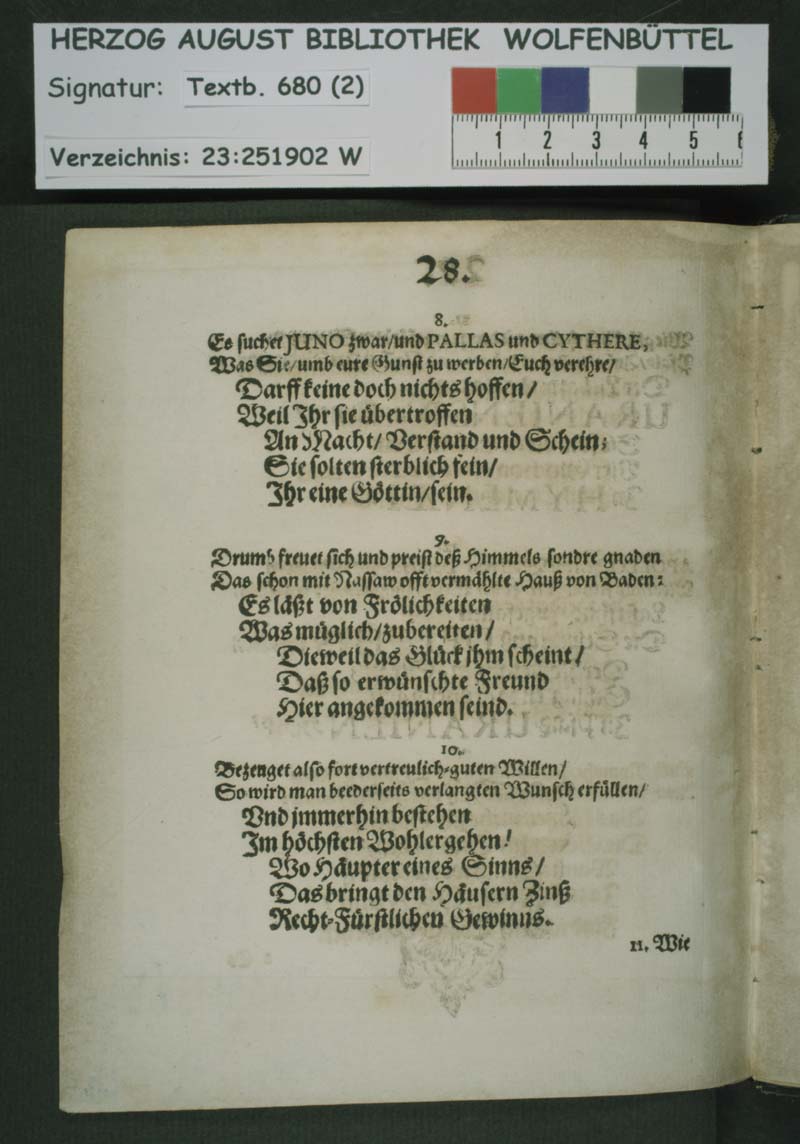 HERZOG AUGUST BIBLIOTHEK WOLFENBÜTTEL
Signatur: Textb. 680 (2)
Verzeichnis: 23:251902 W
1 2 3 4 5
28.
8.
Es suchet JUNO zwar/und PALLAS und CYTHERE,
Was Sie/umb eure Gunst zu werben/Euch verehre/
Darff keine doch nichts hoffen/
Weil Jhr sie übertroffen
An Macht/ Verstand und Schein;
Sie solten sterblich sein/
Jhr eine Göttin/sein.
9.
Drumb freuet sich und preist deß Himmels sondre gnaden
Das schon mit Nassaw offt vermählte Hauß von Baden:
Es läßt von Frölichkeiten
Was müglich/zubereiten/
Dieweil das Glück jhm scheint/
Daß so erwünschte Freund
Hier angekommen seind.
10.
Bezeuget also fort vertreulich-guten Willen/
So wird man beederseits verlangten Wunsch erfüllen/
Vnd jmmerhin bestehen
Jm höchsten Wohlergehen!
Wo Häupter eines Sinns/
Das bringt den Häusern Zinß
Recht-Fürstlichen Gewinns.
11. Wie